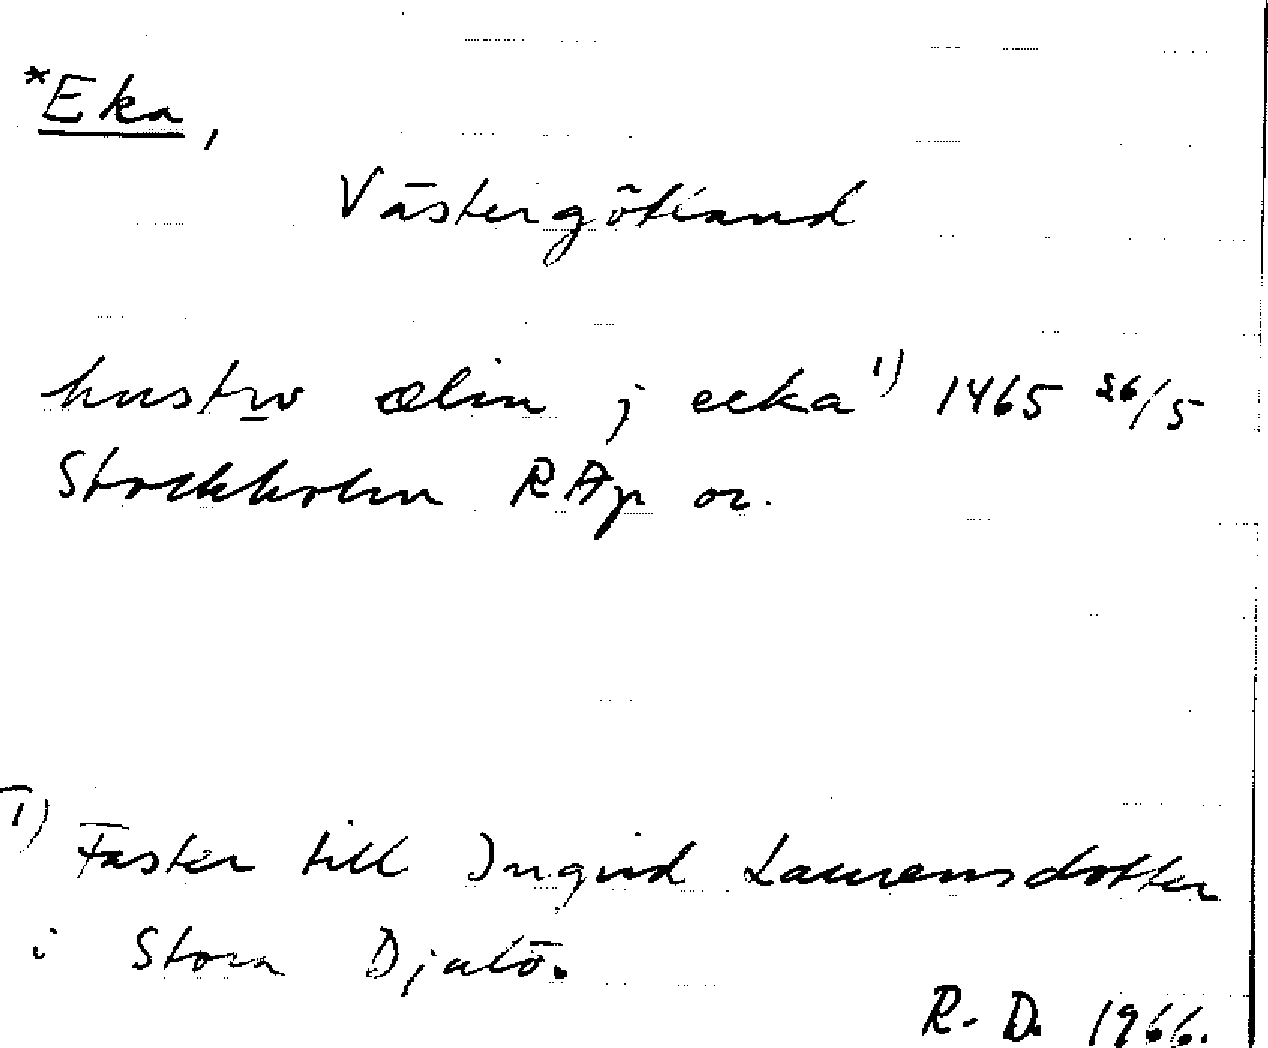 *Eka,
Västergötland
hustrv ælin j ecka 1) 1465 26/5
Stockholm RAp or.
1) Faster till Ingrid Laurensdotter
i Stora Djulö.
R. D. 1966.